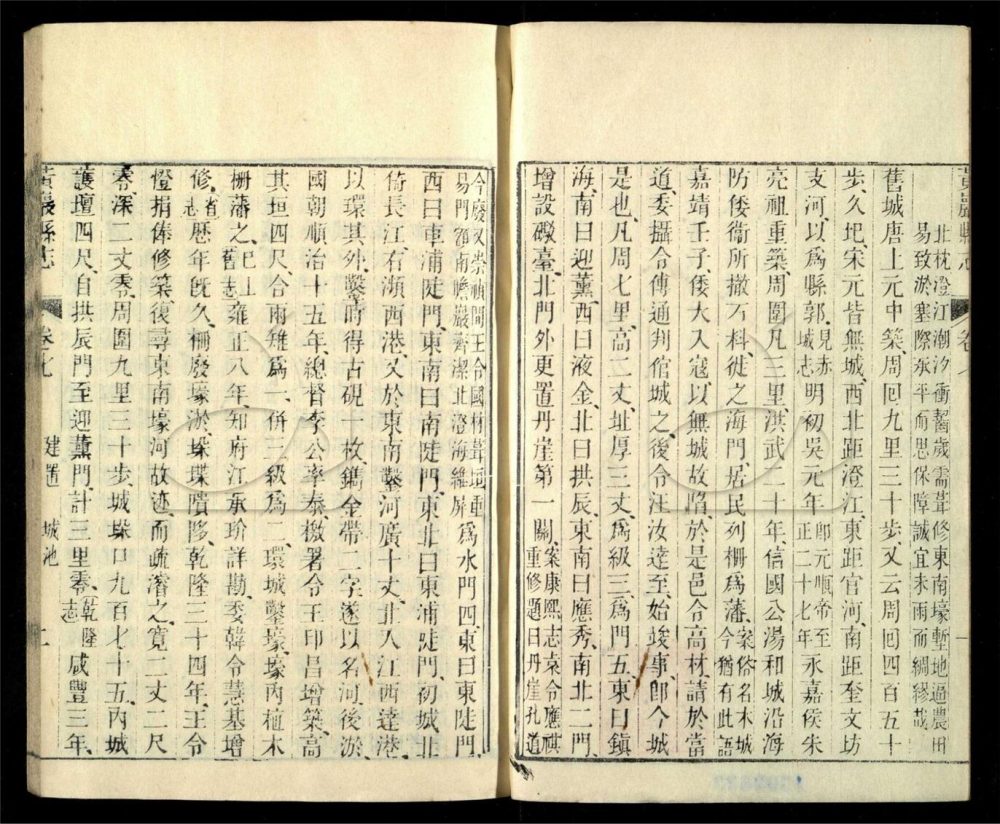 黃巖縣志 卷七 一
北枕澄江潮汐衝齧歲需葺修東南壕塹地過農田
易致淤塞際承平而思保障誠宜未雨而綢繆哉
舊城唐上元中築周回九里三十步又云周回四百五十
步久圮宋元皆無城西北距澄江東距官河南距奎文坊
支河以爲縣郭見赤城志明初吳元年卽元順帝至正二十七年永嘉侯朱
亮祖重築周圍凡三里洪武二十年信國公湯和城沿海
防倭衞所撤石料徙之海門居民列柵爲藩案俗名木城今猶有此語
嘉靖壬子倭大入寇以無城故陷於是邑令高材請於當
道委攝令傅通判倌城之後令汪汝達至始竣事郎今城
是也凡周七里高二丈址厚三丈爲級三爲門五東曰鎮
海南曰迎薰西曰液金北曰拱辰東南曰應秀南北二門
增設礮臺北門外更置丹崖第一關案康熙志袁令應祺重修題曰丹崖孔道
今廢又崇禎間王令國材葺垣重
易門額南瞻巖齊潔北澄海維屏爲水門四東曰東陡門
西曰車浦陡門東南曰南陡門東北曰東浦陡門初城北
倚長江右瀕西港又於東南鑿河廣十丈北入江西達港
以環其外鑿時得古硯十枚鐫金帶二字遂以名河後淤
國朝順治十五年總督李公率泰檄署令王印昌增築高
其垣四尺合兩雉爲一併三級爲二環城鑿壕壕內植木
柵藩之已上舊志雍正八年知府江承玠詳勘委韓令慧基增
修省志歷年旣久柵廢壕淤垛堞隤陊乾隆三十四年王令
燈捐俸修築復尋東南壕河故迹而疏濬之寬二丈二尺
零深二丈零周圍九里三十步城垛口九百七十五內城
護壇四尺自拱辰門至迎薰門計三里零乾隆志咸豐三年
黃巖縣志 卷七 建置 城池 二